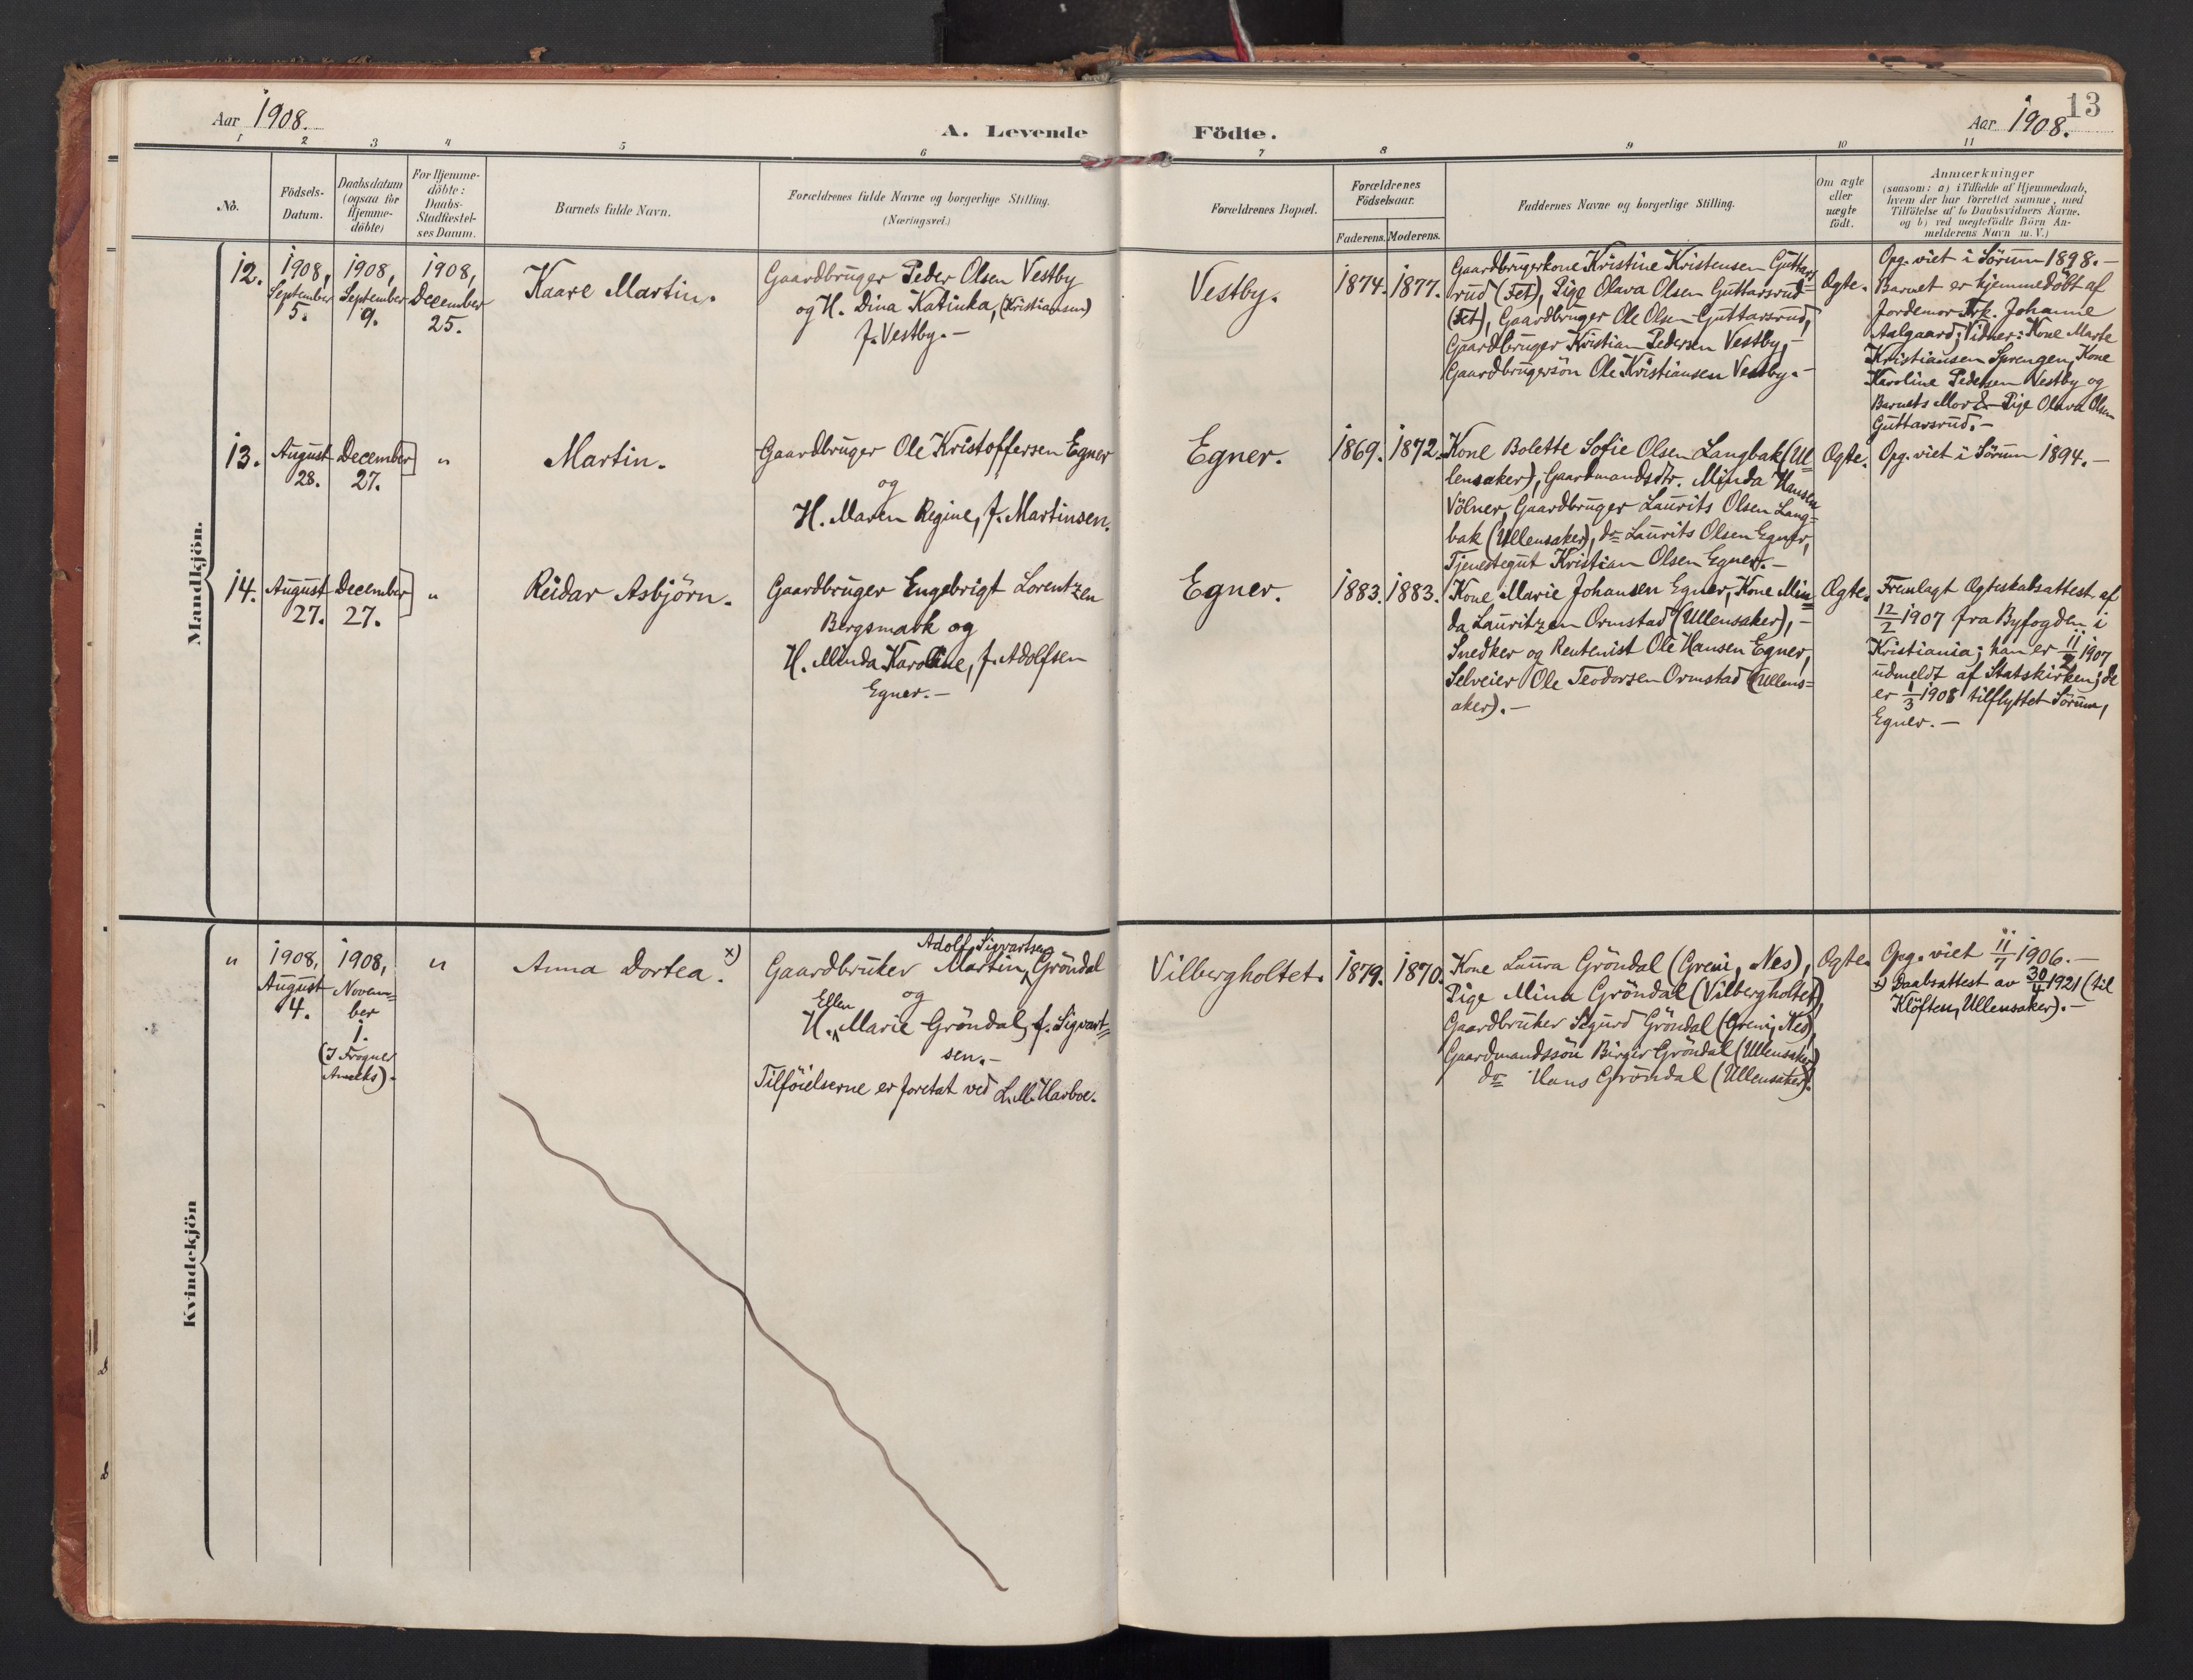 Aar 1908.
A. Levende Födte.
13
Aar 1908.
1 2 3 4 5 6 7 8 9 10 11
No.
Födsels-
Datum.
Daabsdatum
(ogsaa for
Hjemme-
döbte)
For Hjemme-
döbte:
Daabs-
Stadfæstel-
ses Datum.
Barnets fulde Navn.
Forældrenes fulde Navne og borgerlige Stilling.
(Næringsvei.)
Forældrenes Bopæl.
Forældrenes
Födselsaar.
Faderens. Moderens.
Faddernes Navne og borgerlige Stilling.
Om ægte
eller
uægte
födt.
Anmærkninger
(saasom: a) i Tilfælde af Hjemmedaab,
hvem der har forrettet samme, med
Tilföielse af to Daabsvidners Navne,
og b) ved uægtefödte Börn An-
melderens Navn m. V.)
Mandkjön.
12.
1908,
September
5.
1908,
September
9.
1908,
December
25.
Kaare Martin.
Gaardbruger Peder Olsen Vestby
og H. Dina Katinka, (Kristiansen)
f. Vestby. –
Vestby.
1874. 1877.
Gaardbrugerkone Kristine Kristensen Guttars
rud (Fet), Pige Olava Olsen Guttarsrud
(Fet), Gaardbruger Ole Olsen Guttarsrud,
Gaardbruger Kristian Pedersen Vestby, –
Gaardbrugersön Ole Kristiansen Vestby. –
Ægte.
Opg. viet i Sörum 1898. –
Barnet er hjemmedöbt af
Jordemor Frk. Johanne
Aalgaard; Vidner: Kone Marte
Kristiansen Sprengen, Kone
Karoline Pedersen Vestby og
Barnets Mor & Pige Olava Olsen
Guttarsrud. –
13.
August
28.
December
27.
"
Martin.
Gaardbruger Ole Kristoffersen Egner
og
H. Maren Regine, f. Martinsen.
Egner.
1869. 1872.
Kone Bolette Sofie Olsen Langbak (Ul=
lensaker), Gaardmandsdtr. Minda Hansen
Völner, Gaardbruger Laurits Olsen Lang=
bak (Ullensaker), do Laurits Olsen Egner,
Tjenestegut Kristian Olsen Egner. –
Ægte.
Opg. viet i Sörum 1894. –
14.
August
27.
December
27.
"
Reidar Asbjörn.
Gaardbruger Engebrigt Lorentzen
Bergsmark og
H. Minda Karoline, f. Adolfsen
Egner. –
Egner.
1883. 1883.
Kone Marie Johansen Egner, Kone Min=
da Lauritzen Ormstad (Ullensaker), –
Snedker og Rentenist Ole Hansen Egner,
Selveier Ole Teodorsen Ormstad (Ullens=
aker). –
Ægte.
Fremlagt Ægteskabsattest af
12/2 1907 fra Byfogden i
Kristiania; han er 11/2 1907
udmeldt af Statskirken; de
er 1/3 1908 tilflyttet Sörum,
Egner. –
Kvindekjön
"
1908,
August
4.
1908,
Novem=
ber
1.
(I Frogner
Anneks).
"
Anna Dortea. x)
Adolf Sigvartsen
Gaardbruker Martin Gröndal
og
Ellen
H. Marie Gröndal, f. Sigvart=
sen. –
Tilföielserne er foretat ved L.M. Harboe.
Vilbergholtet.
1879. 1870.
Kone Laura Gröndal (Greni, Nes),
Pige Mina Gröndal (Vilbergholtet),
Gaardbruker Sigurd Gröndal (Greni, Nes),
Gaardmandssön Birger Gröndal (Ullensaker)
do Hans Gröndal (Ullensaker).
Ægte.
Opg. viet 11/7 1906. –
x) Daabsattest av 30/4 1921 (til
Klöften, Ullensaker). –